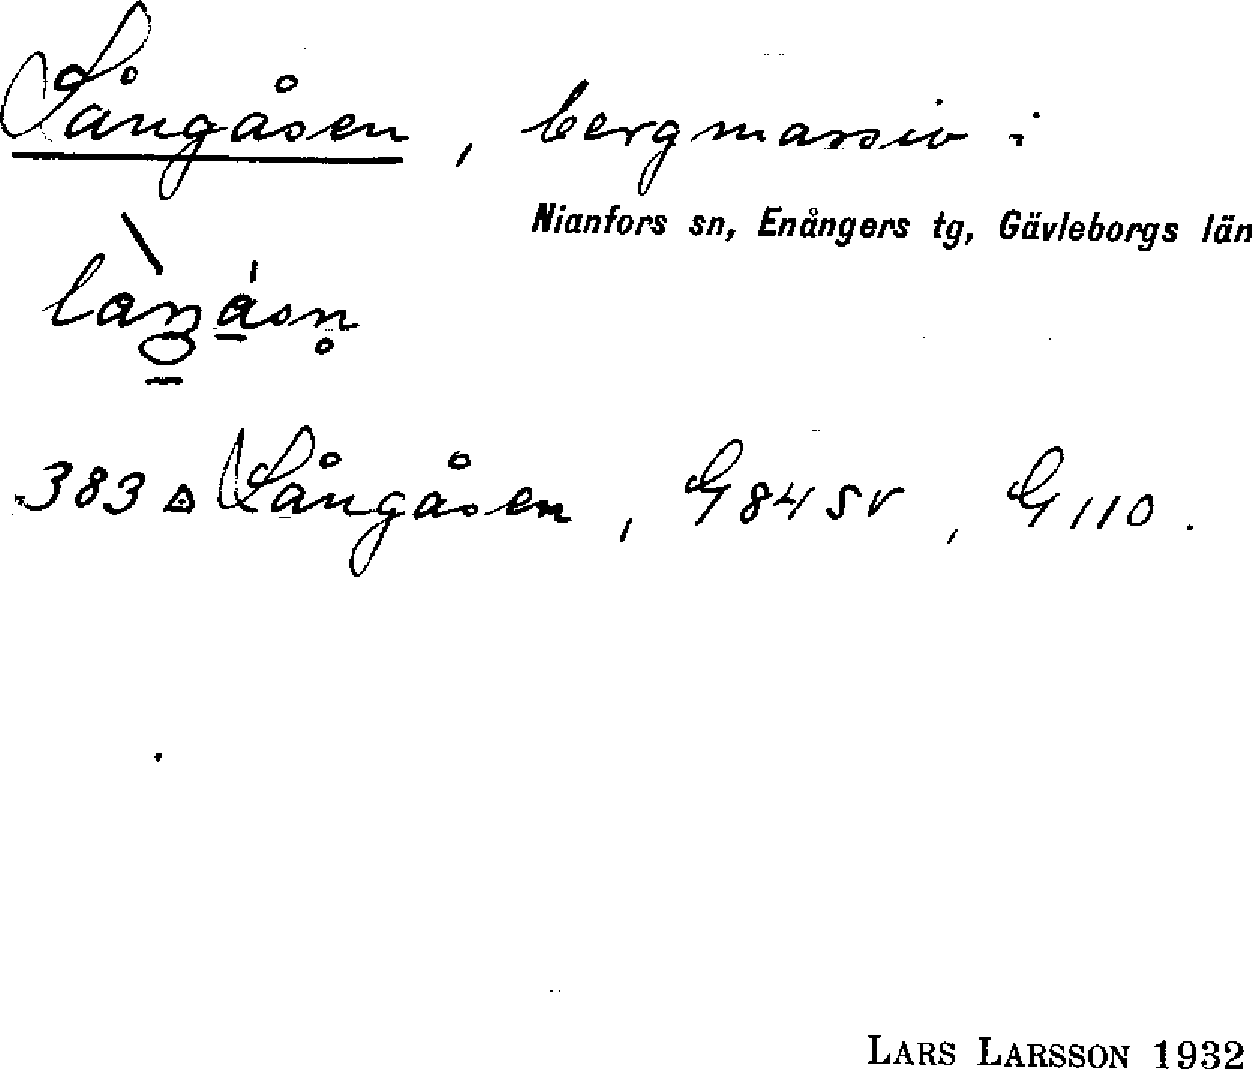 Långåsen, bergmassiv i
Nianfors sn, Enångers tg, Gävleborgs län
383 △ Långåsen, G 84 SV, G 110.
LARS LARSSON 1932